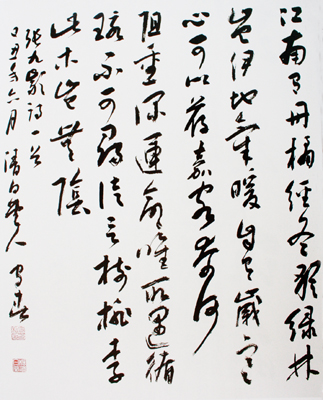 江南有丹橘經冬猶綠林
豈伊地氣暖自有歲寒
心可以薦嘉客奈何
阻重深運命唯所遇循
環不可尋徒言樹桃李
此木豈無陰
張九齡詩一首
己丑年六月清白